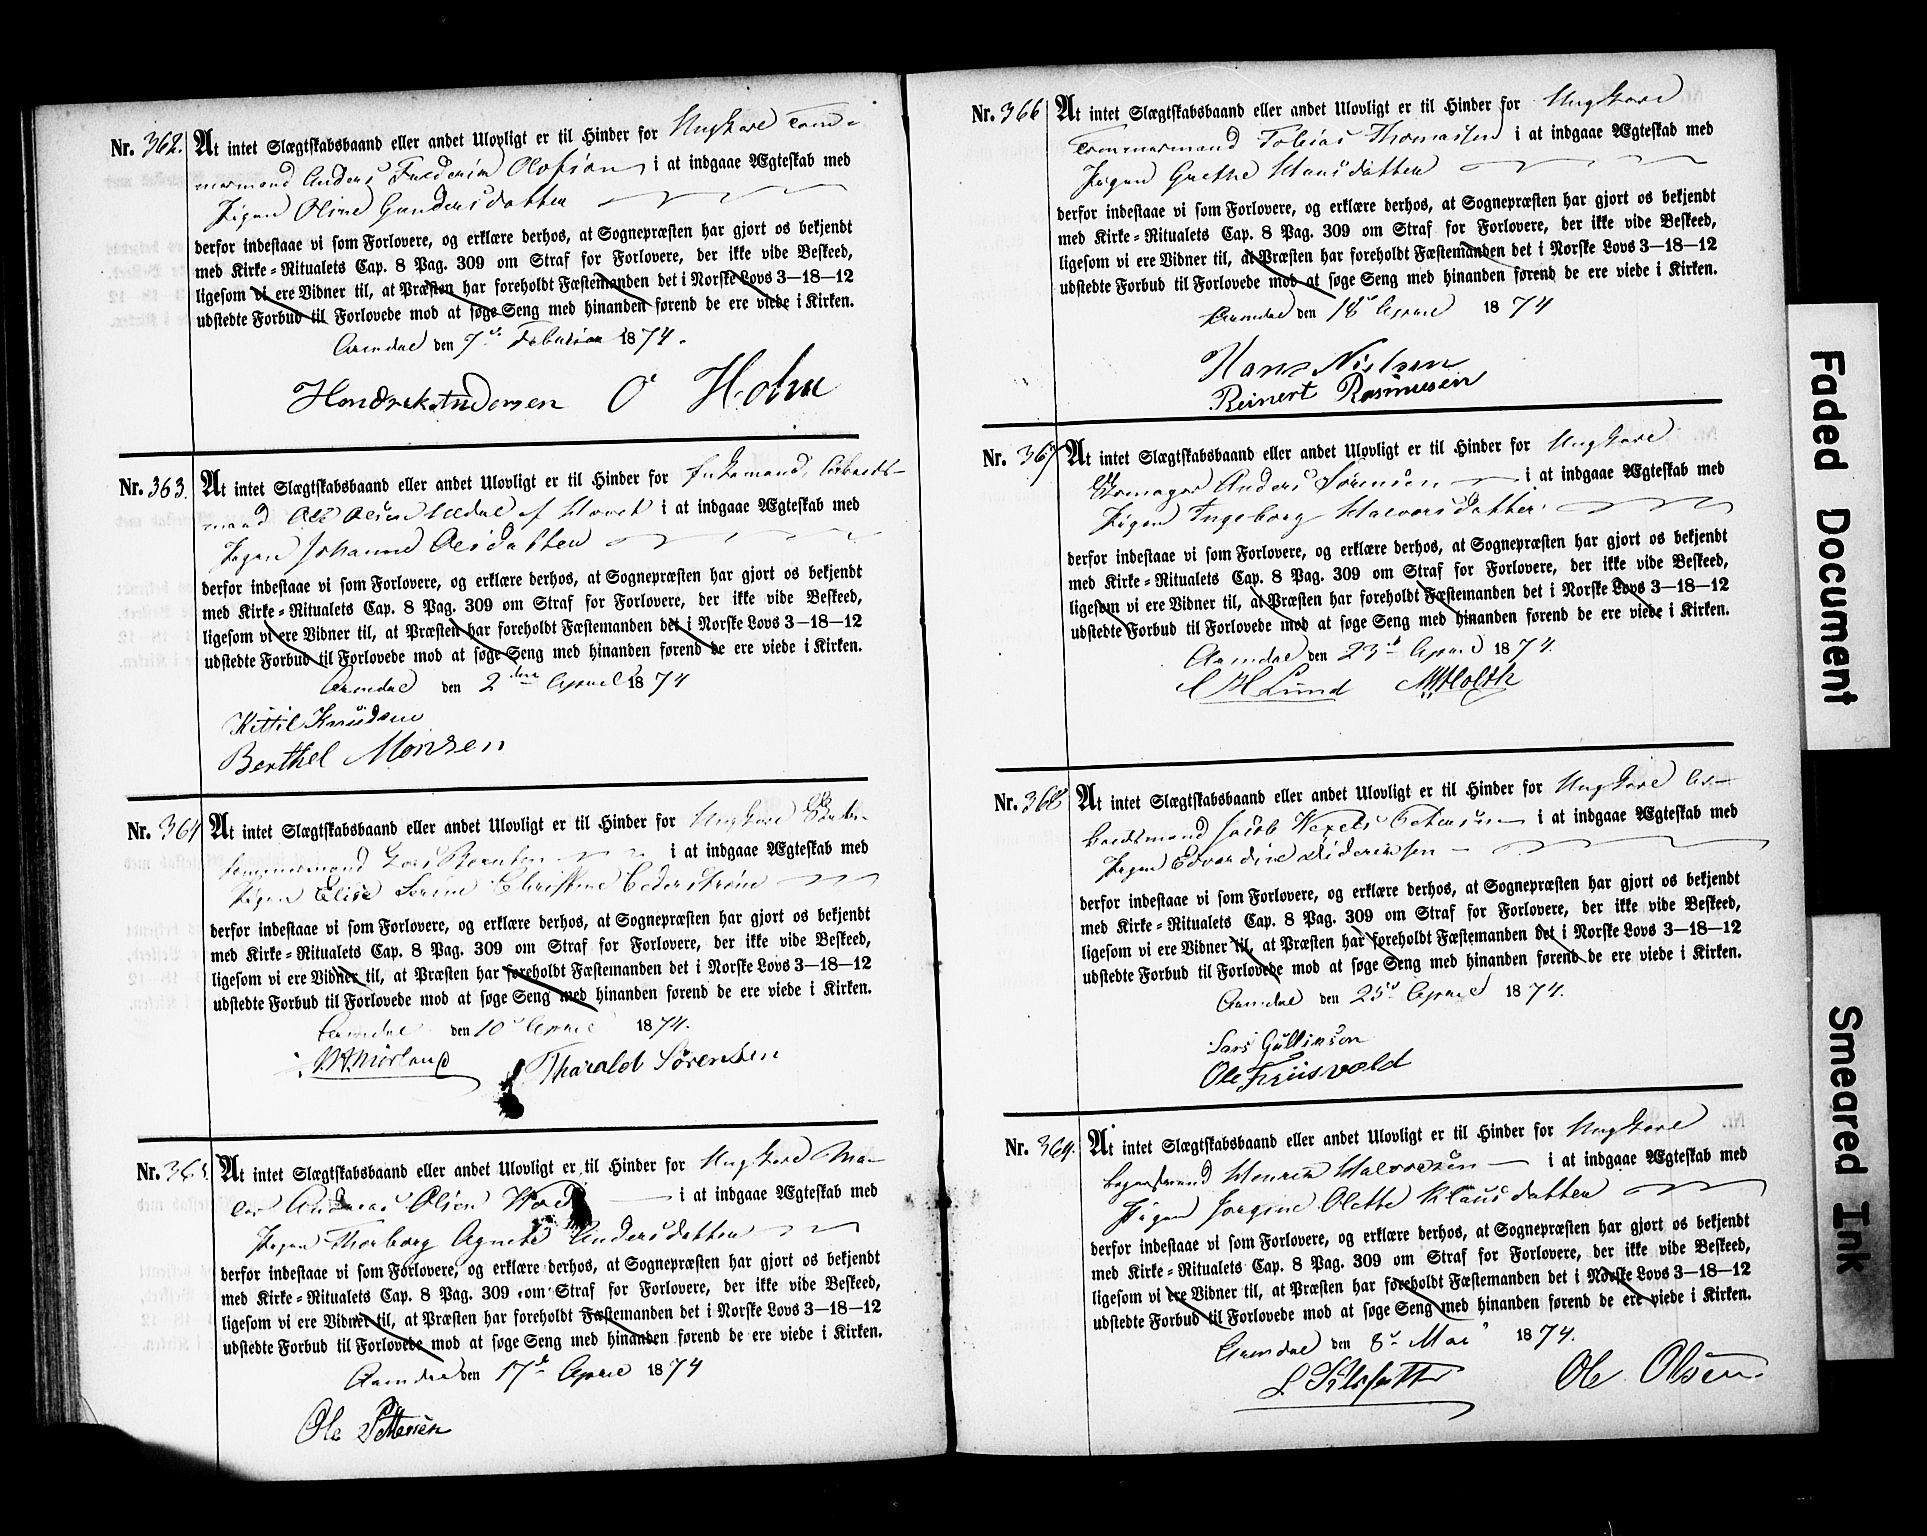 Nr. 362. At intet Slægtskabsbaand eller andet Ulovligt er til Hinder for Ungkarl Töm-
mermand Anders Frederik Olofson i at indgaae Ægteskab med
Pigen Oline Gundersdatter
derfor indestaae vi som Forlovere, og erklære derhos, at Sognepræsten har gjort os bekjendt
med Kirke-Ritualets Cap. 8 Pag. 309 om Straf for Forlovere, der ikke vide Beskeed,
ligesom vi ere Vidner til, at Præsten har foreholdt Fæstemanden det i Norske Lovs 3—18—12
udstedte Forbud til Forlovede mod at søge Seng med hinanden førend de ere viede i Kirken.
Arendal den 7de Februar 1874.
Hendrik Andersen O Holm
Nr. 363. At intet Slægtskabsbaand eller andet Ulovligt er til Hinder for Enkemand, Arbeids-
mand Ole Olsen af i at indgaae Ægteskab med
Pigen Johanne Olsdatter
derfor indestaae vi som Forlovere, og erklære derhos, at Sognepræsten har gjort os bekjendt
med Kirke-Ritualets Cap. 8 Pag. 309 om Straf for Forlovere, der ikke vide Beskeed,
ligesom vi ere Vidner til, at Præsten har foreholdt Fæstemanden det i Norske Lovs 3—18—12
udstedte Forbud til Forlovede mod at søge Seng med hinanden førend de ere viede i Kirken.
Arendal den 2den April 1874
Kittil Knudsen
Berthel Monsen
Nr. 364 At intet Slægtskabsbaand eller andet Ulovligt er til Hinder for Ungkarl
tømmermand Lars Berntsen i at indgaae Ægteskab med
Pigen Elise Sørine Christine Cederstrøm
derfor indestaae vi som Forlovere, og erklære derhos, at Sognepræsten har gjort os bekjendt
med Kirke-Ritualets Cap. 8 Pag. 309 om Straf for Forlovere, der ikke vide Beskeed,
ligesom vi ere Vidner til, at Præsten har foreholdt Fæstemanden det i Norske Lovs 3—18—12
udstedte Forbud til Forlovede mod at søge Seng med hinanden førend de ere viede i Kirken.
Arendal den 10d April 1874.
Mørland Tharald Sørensen
Nr. 365. At intet Slægtskabsbaand eller andet Ulovligt er til Hinder for Ungkarl Ma-
ler Andreas Olsen i at indgaae Ægteskab med
Pigen Thorborg Agnete Andersdatter
derfor indestaae vi som Forlovere, og erklære derhos, at Sognepræsten har gjort os bekjendt
med Kirke-Ritualets Cap. 8 Pag. 309 om Straf for Forlovere, der ikke vide Beskeed,
ligesom vi ere Vidner til, at Præsten har foreholdt Fæstemanden det i Norske Lovs 3—18—12
udstedte Forbud til Forlovede mod at søge Seng med hinanden førend de ere viede i Kirken.
Arendal den 17de April 1874
Ole Pettersen
Nr. 366 At intet Slægtskabsbaand eller andet Ulovligt er til Hinder for Ungkarl
Tømmermand Tobias Thomassen i at indgaae Ægteskab med
Pigen Grethe Hansdatter
derfor indestaae vi som Forlovere, og erklære derhos, at Sognepræsten har gjort os bekjendt
med Kirke-Ritualets Cap. 8 Pag. 309 om Straf for Forlovere, der ikke vide Beskeed,
ligesom vi ere Vidner til, at Præsten har foreholdt Fæstemanden det i Norske Lovs 3—18—12
udstedte Forbud til Forlovede mod at søge Seng med hinanden førend de ere viede i Kirken.
Arendal den 18d April 1874
Hans Nielsen
Reinert Rasmusen
Nr. 367 At intet Slægtskabsbaand eller andet Ulovligt er til Hinder for Ungkarl
Anders Sørensen i at indgaae Ægteskab med
Pigen Ingeborg Halvorsdatter
derfor indestaae vi som Forlovere, og erklære derhos, at Sognepræsten har gjort os bekjendt
med Kirke-Ritualets Cap. 8 Pag. 309 om Straf for Forlovere, der ikke vide Beskeed,
ligesom vi ere Vidner til, at Præsten har foreholdt Fæstemanden det i Norske Lovs 3—18—12
udstedte Forbud til Forlovede mod at søge Seng med hinanden førend de ere viede i Kirken.
Arendal den 23d April 1874.
C H Lund M Holth
Nr. 368 At intet Slægtskabsbaand eller andet Ulovligt er til Hinder for Ungkarl Ar-
beidsmand Jacob Wexels Petersen i at indgaae Ægteskab med
Pigen Edvardine Didriksen
derfor indestaae vi som Forlovere, og erklære derhos, at Sognepræsten har gjort os bekjendt
med Kirke-Ritualets Cap. 8 Pag. 309 om Straf for Forlovere, der ikke vide Beskeed,
ligesom vi ere Vidner til, at Præsten har foreholdt Fæstemanden det i Norske Lovs 3—18—12
udstedte Forbud til Forlovede mod at søge Seng med hinanden førend de ere viede i Kirken.
Arendal den 25d April 1874.
Lars Gullinson
Ole Friisvold
Nr. 369. At intet Slægtskabsbaand eller andet Ulovligt er til Hinder for Ungkarl
Henrik Halvorsen i at indgaae Ægteskab med
Pigen Jorgine Olette Klausdatter
derfor indestaae vi som Forlovere, og erklære derhos, at Sognepræsten har gjort os bekjendt
med Kirke-Ritualets Cap. 8 Pag. 309 om Straf for Forlovere, der ikke vide Beskeed,
ligesom vi ere Vidner til, at Præsten har foreholdt Fæstemanden det i Norske Lovs 3—18—12
udstedte Forbud til Forlovede mod at søge Seng med hinanden førend de ere viede i Kirken.
Arendal den 8d Mai 1874.
Ole Olsen
Faded Document
Smeared Ink